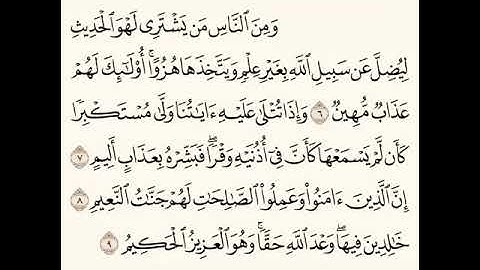 وَمِنَ ٱلنَّاسِ مَن يَشْتَرِى لَهْوَ ٱلْحَدِيثِ
لِيُضِلَّ عَن سَبِيلِ ٱللَّهِ بِغَيْرِ عِلْمٍ وَيَتَّخِذَهَا هُزُوًا ۚ أُو۟لَـٰٓئِكَ لَهُمْ
عَذَابٌ مُّهِينٌ ٦ وَإِذَا تُتْلَىٰ عَلَيْهِ ءَايَـٰتُنَا وَلَّىٰ مُسْتَكْبِرًا
كَأَن لَّمْ يَسْمَعْهَا كَأَنَّ فِىٓ أُذُنَيْهِ وَقْرًا ۖ فَبَشِّرْهُ بِعَذَابٍ أَلِيمٍ ٧
إِنَّ ٱلَّذِينَ ءَامَنُوا۟ وَعَمِلُوا۟ ٱلصَّـٰلِحَـٰتِ لَهُمْ جَنَّـٰتُ ٱلنَّعِيمِ ٨
خَـٰلِدِينَ فِيهَا ۖ وَعْدَ ٱللَّهِ حَقًّا ۚ وَهُوَ ٱلْعَزِيزُ ٱلْحَكِيمُ ٩